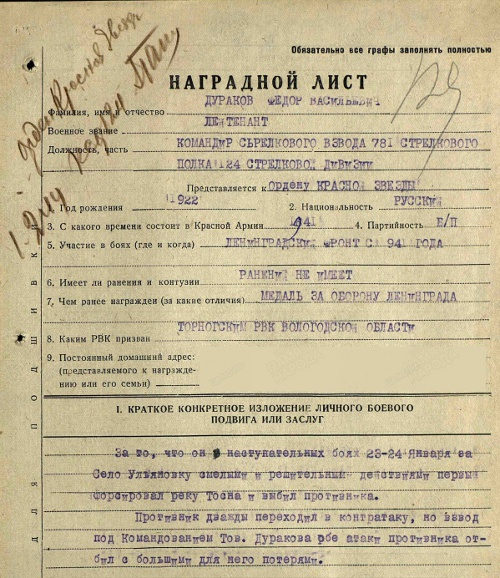 Обязательно все графы заполнять полностью
НАГРАДНОЙ ЛИСТ
Фамилия, имя и отчество ДУРАКОВ ФЕДОР ВАСИЛЬЕВИЧ
Военное звание ЛЕЙТЕНАНТ
Должность, часть КОМАНДИР СЬРЕЛКОВОГО ВЗВОДА 781 СТРЕЛКОВОГО
ПОЛКА 124 СТРЕЛКОВОЙ ДИВИЗИИ
Представляется к Ордену КРАСНОЙ ЗВЕЗДЫ
1. Год рождения 1922 2. Национальность РУССКИЙ
3. С какого времени состоит в Красной Армии 1941 4. Партийность Б/П
5. Участие в боях (где и когда) ЛЕНИНГРАДСКИЙ ФРОНТ С 1941 ГОДА
6. Имеет ли ранения и контузии РАНЕНИЙ НЕ ИМЕЕТ
7. Чем ранее награжден (за какие отличия) МЕДАЛЬ ЗА ОБОРОНУ ЛЕНИНГРАДА
8. Каким РВК призван ТОРНОГСКИМ РВК ВОЛОГОДСКОЙ ОБЛАСТИ
9. Постоянный домашний адрес:
(представляемого к награжде-
нию или его семьи)
I. КРАТКОЕ КОНКРЕТНОЕ ИЗЛОЖЕНИЕ ЛИЧНОГО БОЕВОГО
ПОДВИГА ИЛИ ЗАСЛУГ
За то, что он в наступательных боях 23-24 Января за
Село Ульяновку смелыми и решительный действиями первый
Форсировал реку Тосна и выбил противника.
Противник дважды переходил в контратаку, но взвод
под Командованием Тов. Дуракова обе атаки противника от-
бил с большими для него потерями.
для подшивки